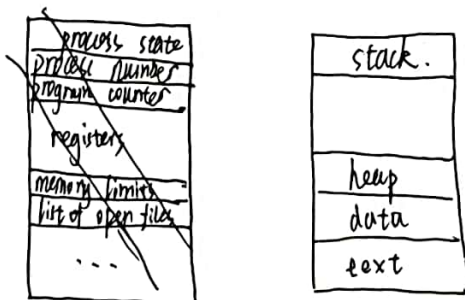 process state
process number
program counter
registers
memory limits
list of open files
...
stack.
heap
data
text